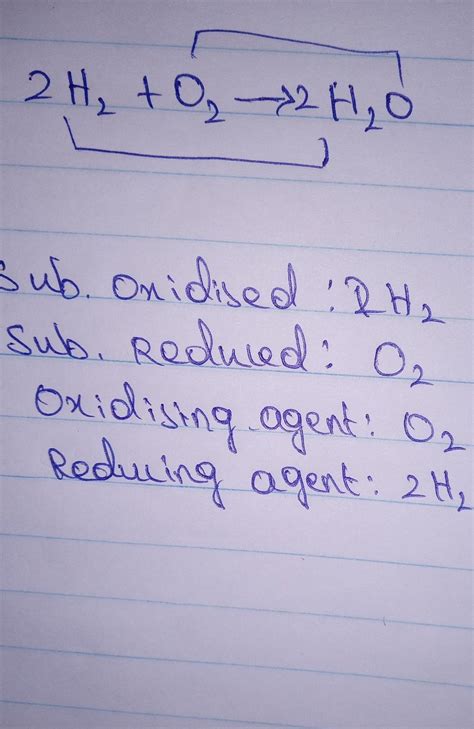 2H₂ + O₂ → 2H₂O
Sub. Oxidised : 2H₂
Sub. Reduced : O₂
Oxidising agent : O₂
Reducing agent : 2H₂